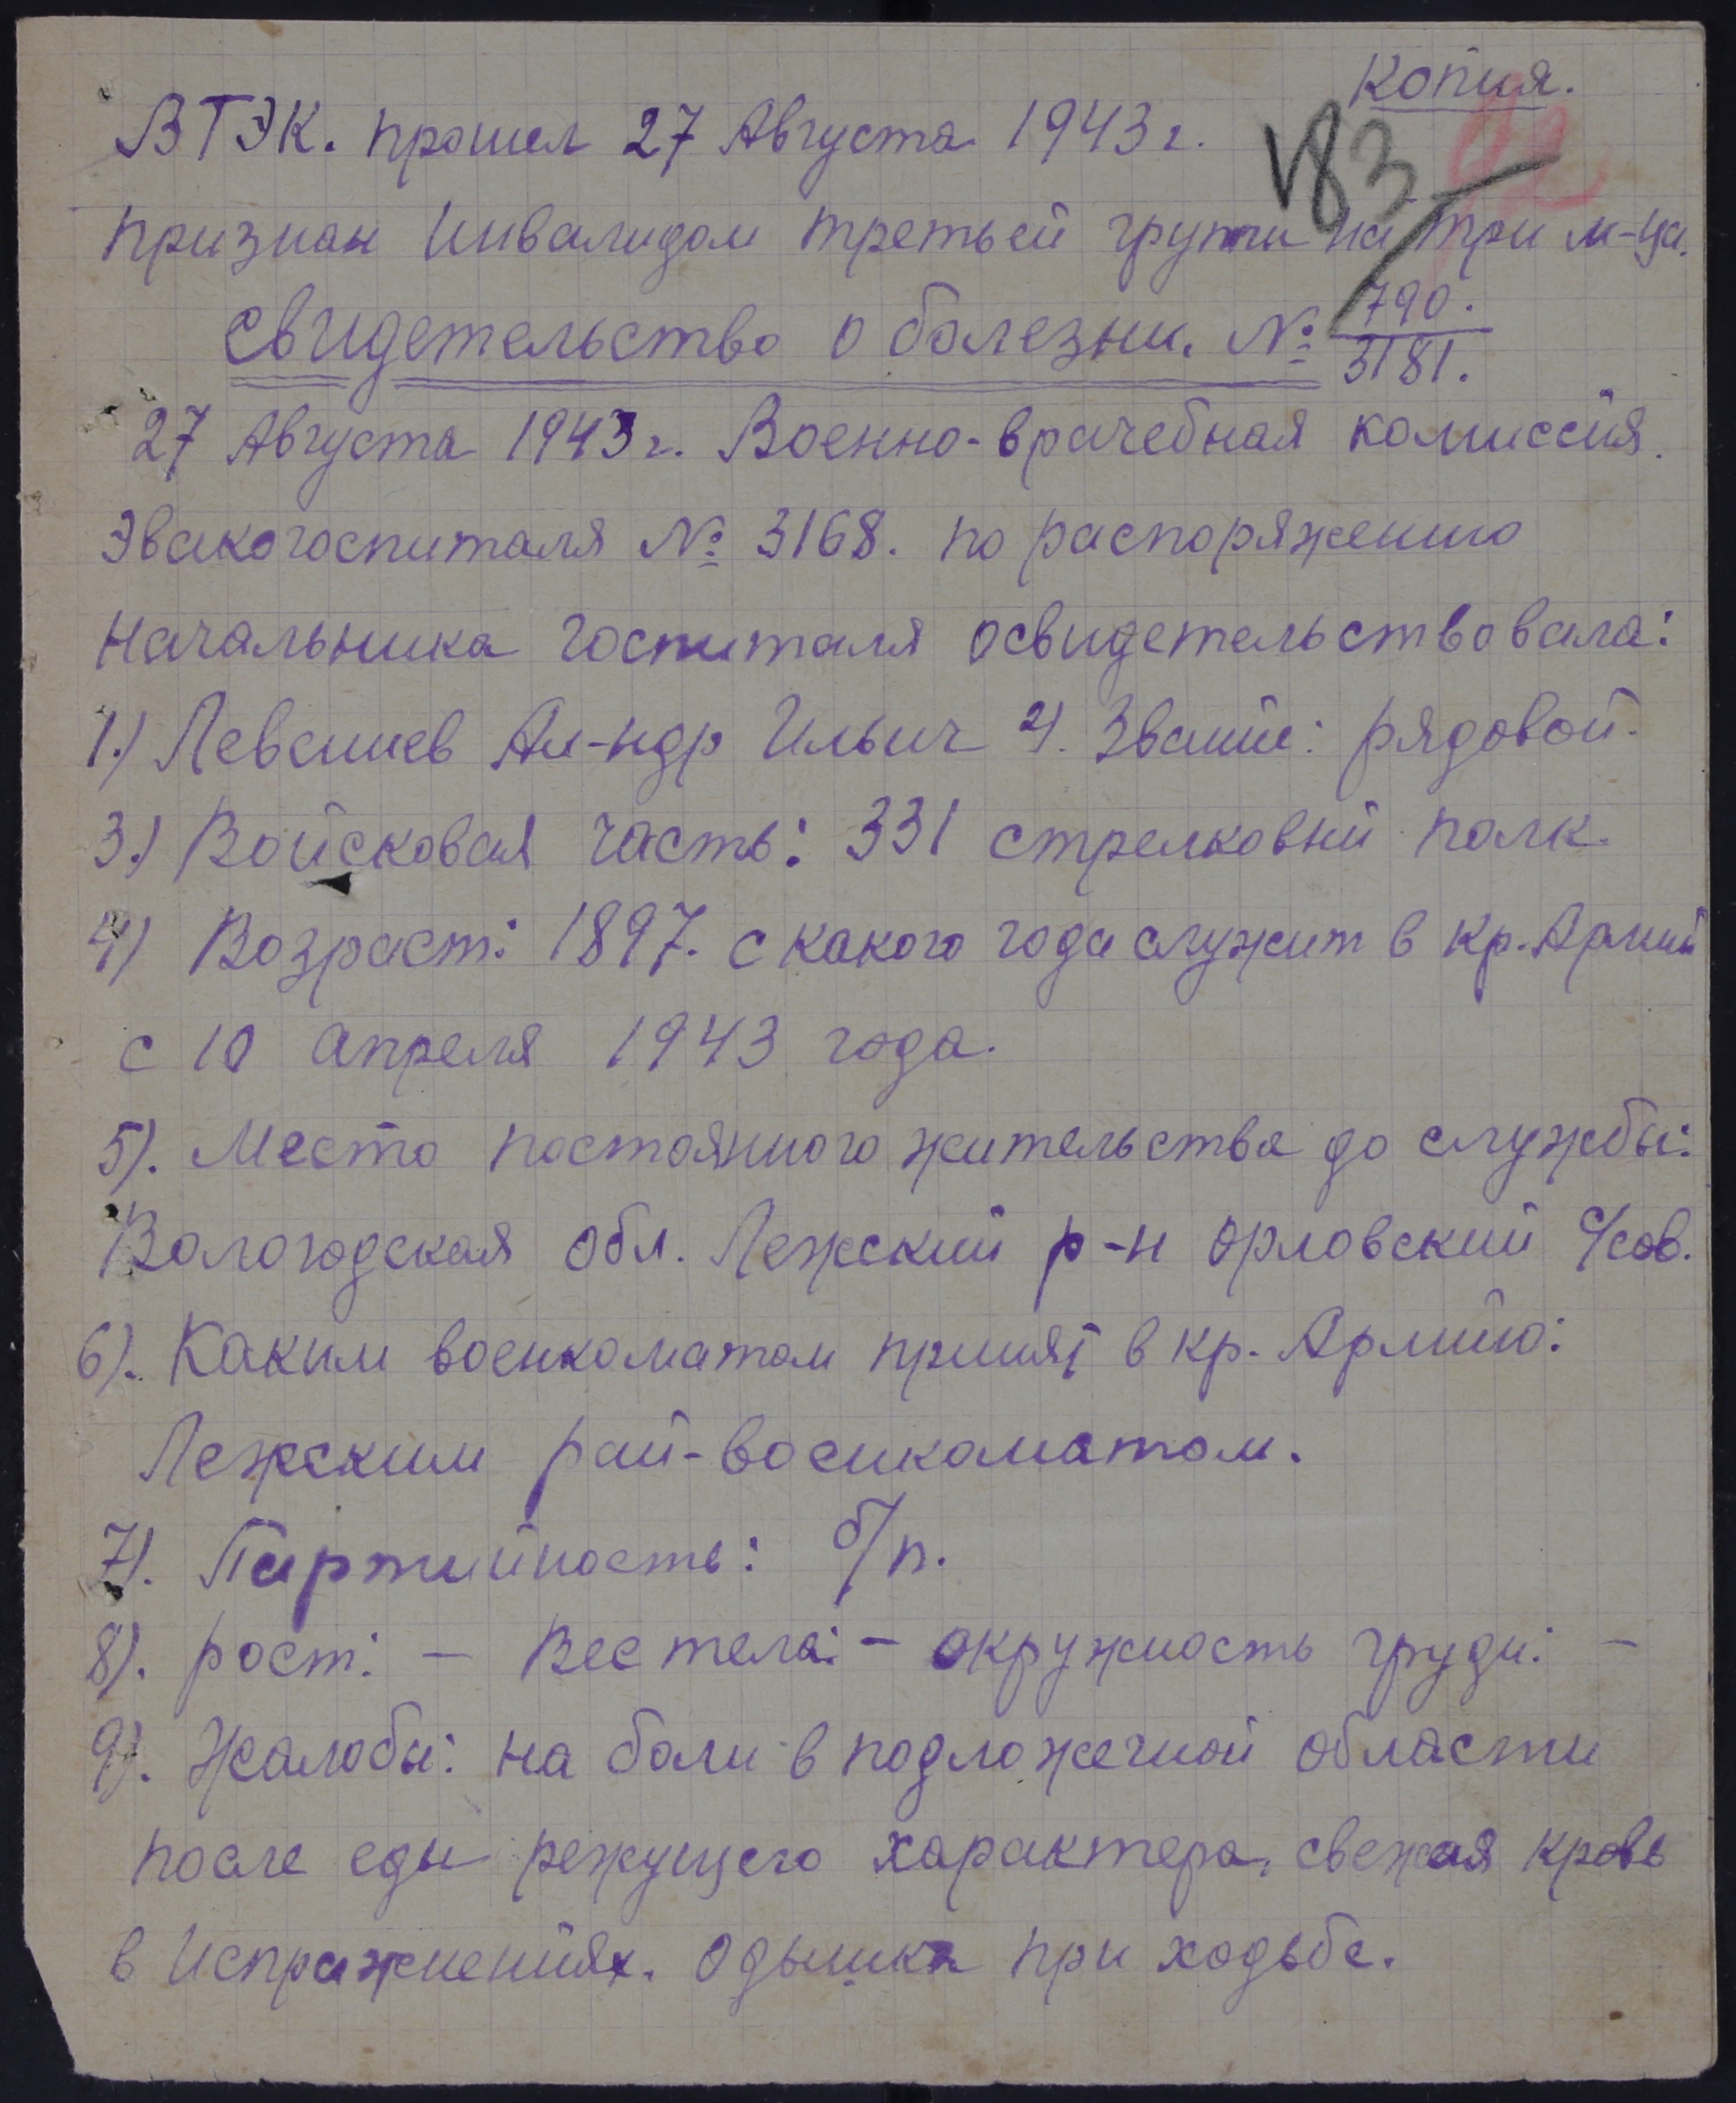 Копия.
ВТЭК. прошел 27 Августа 1943 г.
183
признан Инвалидом третьей групы на три м-ца.
Свидетельство о болезни. № 790. / 3181.
27 Августа 1943 г. Военно-врачебная комиссия.
Эвакогоспиталя № 3168. по распоряжению
Начальника госпиталя освидетельствовала:
1.) Ал-ндр Ильич 2). Звание: рядовой.
3.) Войсковая часть: 331 стрелковый полк.
4) Возраст: 1897. с какого года служит в кр. Армии
с 10 апреля 1943 года.
5). Место постоянного жительства до службы:
Вологодская обл. Лежский р-н Орловский с/сов.
6). Каким военкоматом принят в кр. Армию:
Лежским рай-военкоматом.
7). Партийность: б/п.
8). рост: — Вес тела: — окружность груди: —
9). Жалобы: на боли в подложечной области
после еды режущего характера, свежая кровь
в Испражнениях. Одышка при ходьбе.